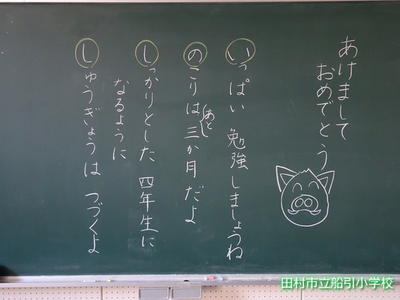 あけまして
おめでとう
いっぱい 勉強しましょうね
のこりは(あとし)三か月だよ
しっかりとした 四年生に
なるように
しゅうぎょうは つづくよ
田村市立船引小学校